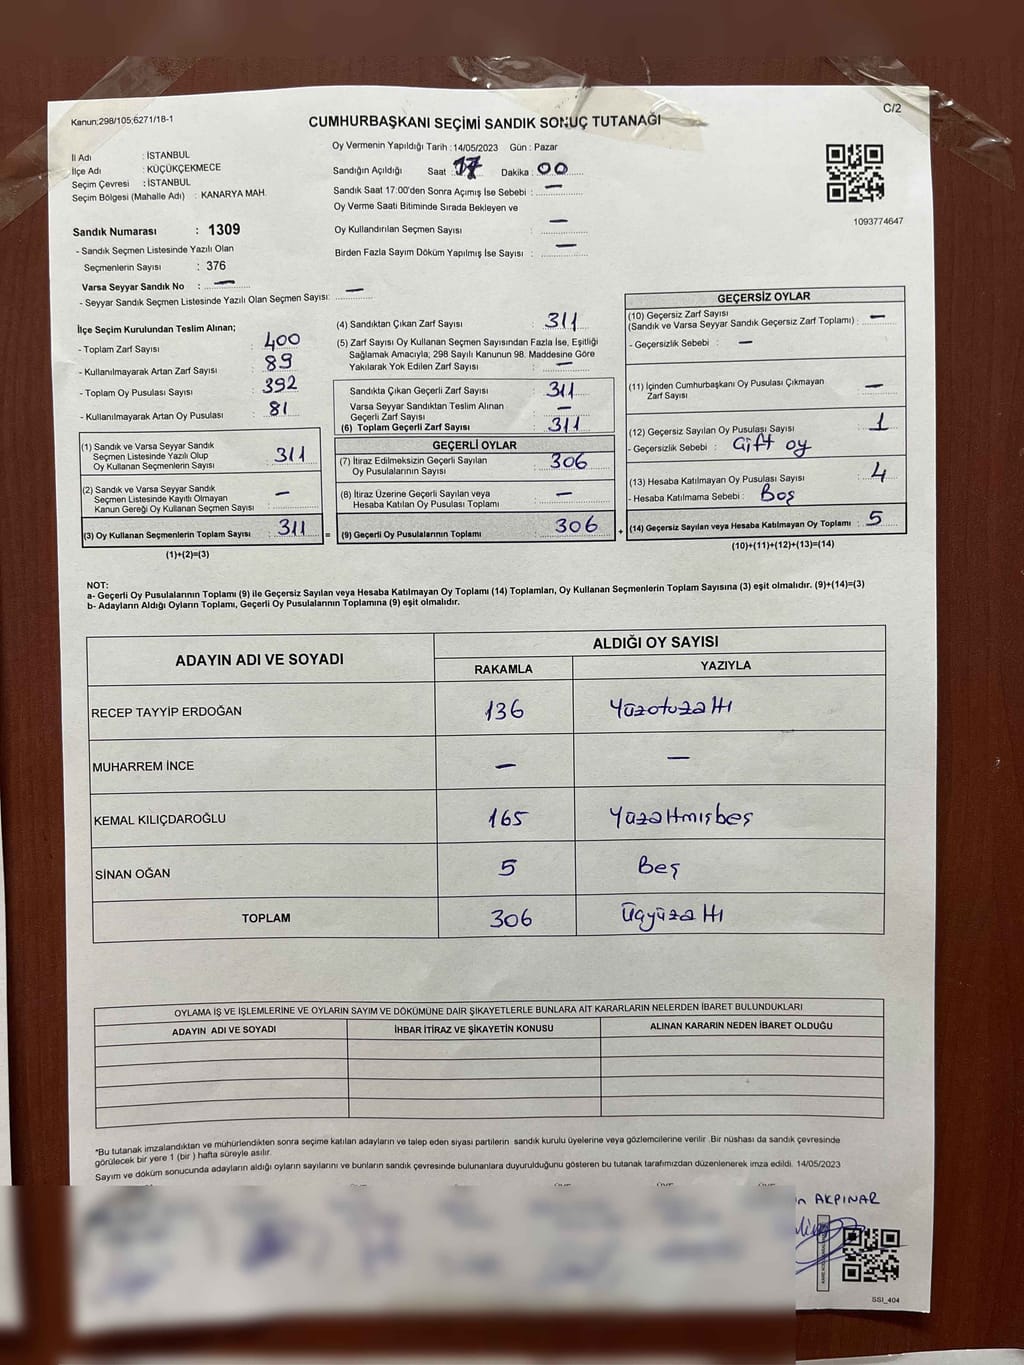 Kanun;298/105;6271/18-1
C/2
CUMHURBAŞKANI SEÇİMİ SANDIK SONUÇ TUTANAĞI
İl Adı : İSTANBUL
İlçe Adı : KÜÇÜKÇEKMECE
Seçim Çevresi : İSTANBUL
Seçim Bölgesi (Mahalle Adı) : KANARYA MAH.
Oy Vermenin Yapıldığı Tarih : 14/05/2023 Gün : Pazar
Sandığın Açıldığı Saat : 17 Dakika : 00
Sandık Saat 17:00'den Sonra Açımış İse Sebebi : —
Oy Verme Saati Bitiminde Sırada Bekleyen ve
Oy Kullandırılan Seçmen Sayısı : —
Birden Fazla Sayım Döküm Yapılmış İse Sayısı : —
1093774647
Sandık Numarası : 1309
- Sandık Seçmen Listesinde Yazılı Olan
Seçmenlerin Sayısı : 376
Varsa Seyyar Sandık No : —
- Seyyar Sandık Seçmen Listesinde Yazılı Olan Seçmen Sayısı: —
İlçe Seçim Kurulundan Teslim Alınan;
- Toplam Zarf Sayısı : 400
- Kullanılmayarak Artan Zarf Sayısı : 89
- Toplam Oy Pusulası Sayısı : 392
- Kullanılmayarak Artan Oy Pusulası : 81
(1) Sandık ve Varsa Seyyar Sandık
Seçmen Listesinde Yazılı Olup
Oy Kullanan Seçmenlerin Sayısı : 311
(2) Sandık ve Varsa Seyyar Sandık
Seçmen Listesinde Kayıtlı Olmayan
Kanun Gereği Oy Kullanan Seçmen Sayısı : —
(3) Oy Kullanan Seçmenlerin Toplam Sayısı : 311 =
(1)+(2)=(3)
(4) Sandıktan Çıkan Zarf Sayısı : 311
(5) Zarf Sayısı Oy Kullanan Seçmen Sayısından Fazla İse, Eşitliği
Sağlamak Amacıyla; 298 Sayılı Kanunun 98. Maddesine Göre
Yakılarak Yok Edilen Zarf Sayısı : —
Sandıkta Çıkan Geçerli Zarf Sayısı : 311
Varsa Seyyar Sandıktan Teslim Alınan
Geçerli Zarf Sayısı : —
(6) Toplam Geçerli Zarf Sayısı : 311
GEÇERLİ OYLAR
(7) İtiraz Edilmeksizin Geçerli Sayılan
Oy Pusulalarının Sayısı : 306
(8) İtiraz Üzerine Geçerli Sayılan veya
Hesaba Katılan Oy Pusulası Toplamı : —
(9) Geçerli Oy Pusulalarının Toplamı : 306 +
GEÇERSİZ OYLAR
(10) Geçersiz Zarf Sayısı
(Sandık ve Varsa Seyyar Sandık Geçersiz Zarf Toplamı) : —
- Geçersizlik Sebebi : —
(11) İçinden Cumhurbaşkanı Oy Pusulası Çıkmayan
Zarf Sayısı : —
(12) Geçersiz Sayılan Oy Pusulası Sayısı : 1
- Geçersizlik Sebebi : Çift oy
(13) Hesaba Katılmayan Oy Pusulası Sayısı : 4
- Hesaba Katılmama Sebebi : Boş
(14) Geçersiz Sayılan veya Hesaba Katılmayan Oy Toplamı : 5
(10)+(11)+(12)+(13)=(14)
NOT:
a- Geçerli Oy Pusulalarının Toplamı (9) ile Geçersiz Sayılan veya Hesaba Katılmayan Oy Toplamı (14) Toplamları, Oy Kullanan Seçmenlerin Toplam Sayısına (3) eşit olmalıdır. (9)+(14)=(3)
b- Adayların Aldığı Oyların Toplamı, Geçerli Oy Pusulalarının Toplamına (9) eşit olmalıdır.
ADAYIN ADI VE SOYADI ALDIĞI OY SAYISI
RAKAMLA YAZIYLA
RECEP TAYYİP ERDOĞAN 136 Yüzotuzaltı
MUHARREM İNCE — —
KEMAL KILIÇDAROĞLU 165 Yüzaltmışbeş
SİNAN OĞAN 5 Beş
TOPLAM 306 Üçyüzaltı
OYLAMA İŞ VE İŞLEMLERİNE VE OYLARIN SAYIM VE DÖKÜMÜNE DAİR ŞİKAYETLERLE BUNLARA AİT KARARLARIN NELERDEN İBARET BULUNDUKLARI
ADAYIN ADI VE SOYADI İHBAR İTİRAZ VE ŞİKAYETİN KONUSU ALINAN KARARIN NEDEN İBARET OLDUĞU
*Bu tutanak imzalandıktan ve mühürlendikten sonra seçime katılan adayların ve talep eden siyasi partilerin sandık kurulu üyelerine veya gözlemcilerine verilir. Bir nüshası da sandık çevresinde
görülecek bir yere 1 (bir) hafta süreyle asılır.
Sayım ve döküm sonucunda adayların aldığı oyların sayılarını ve bunların sandık çevresinde bulunanlara duyurulduğunu gösteren bu tutanak tarafımızdan düzenlenerek imza edildi. 14/05/2023
AKPINAR
SSI_404